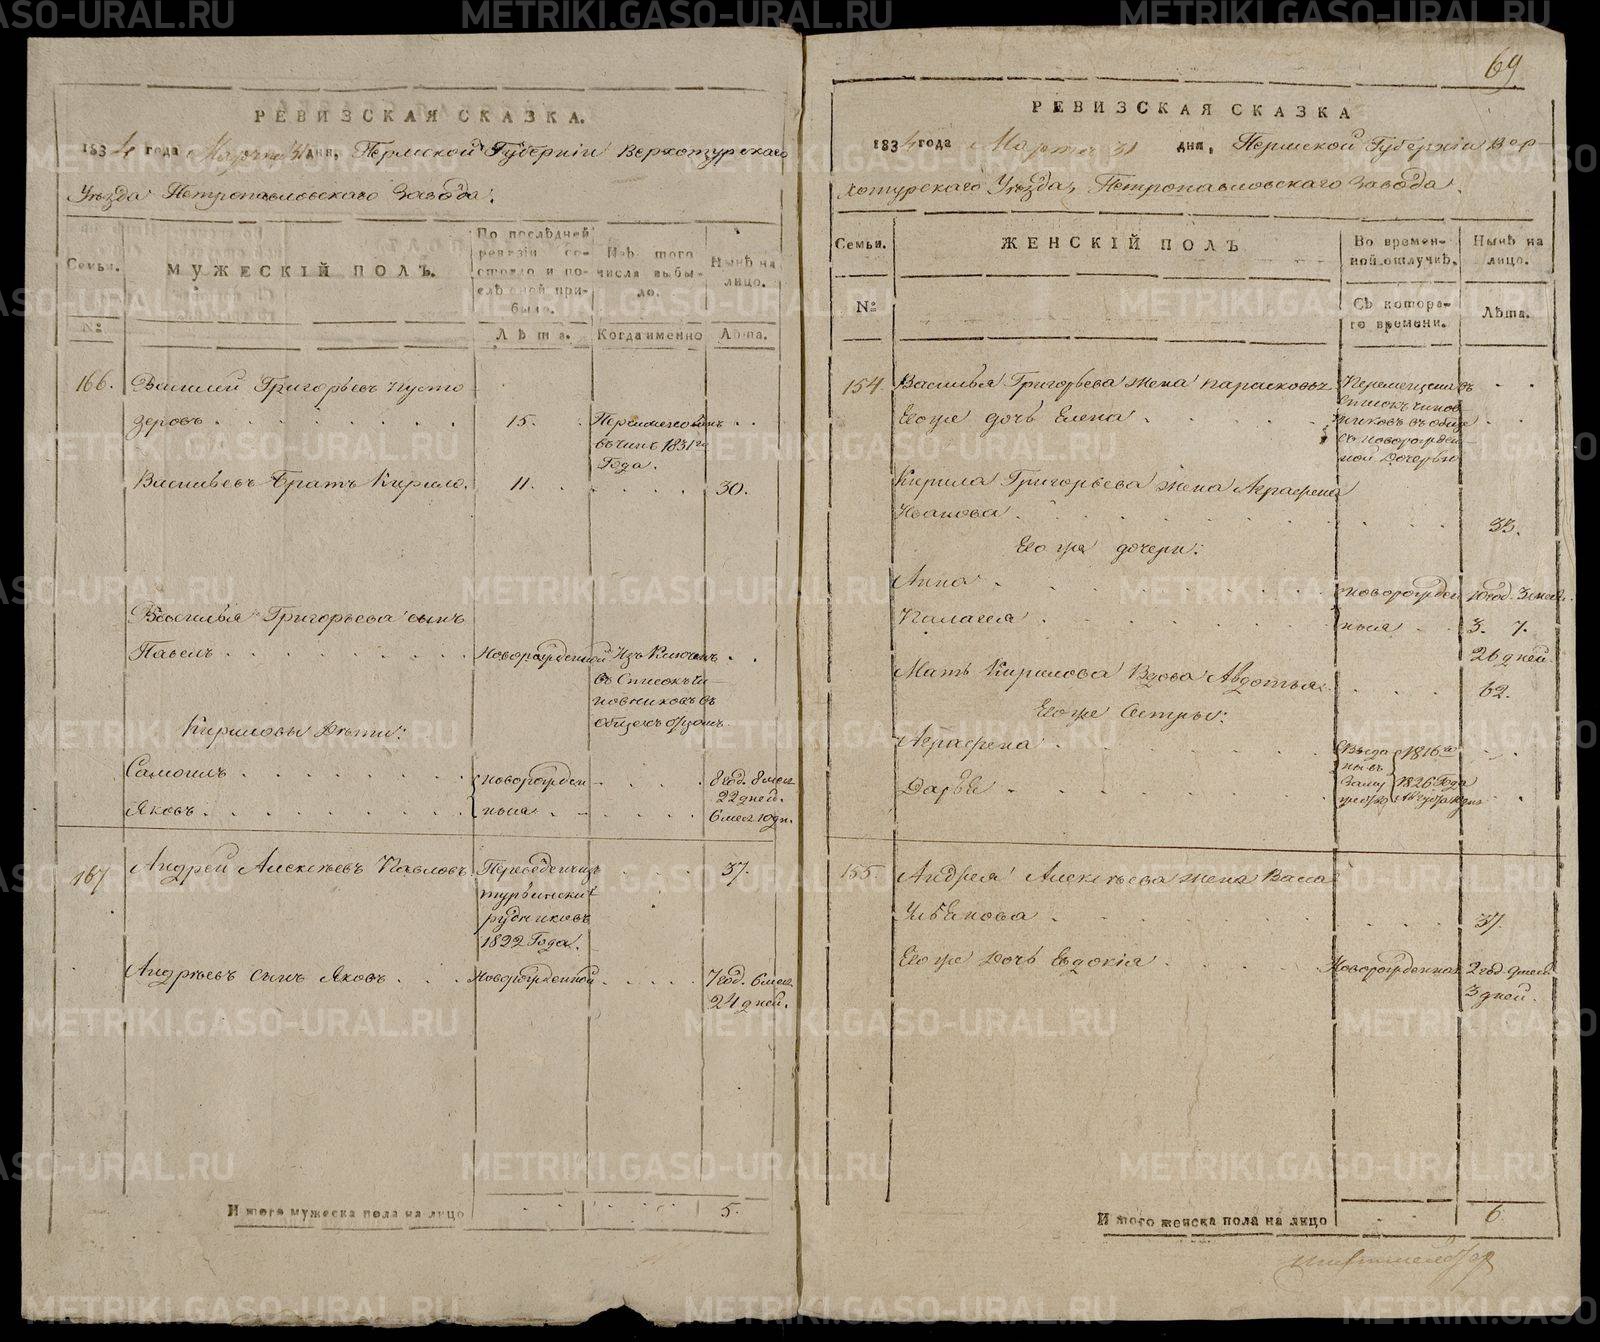 69
РЕВИЗСКАЯ СКАЗКА.
1834 года Марта 31 дня, Пермской Губерніи Верхотурскаго
Уѣзда Петропавловскаго Завода.
Семьи.
№
МУЖЕСКІЙ ПОЛЪ.
По послѣдней ревизіи состояло и послѣ оной прибыло.
Лѣта.
Изъ того числа выбыло.
Когда именно
Нынѣ на лицо.
Лѣта.
166. Василий Григорьевъ Пусто
зеровъ 15.
въ чин. 1831го
Года.
Васильевъ Братъ Кирило. 11. 30.
Василья Григорьева сынъ
Павелъ Новорожденной
въ Списокъ чи
новниковъ въ
Кириловы дѣти:
Самоилъ новорожден 8 год. 8 мес.
22 дней.
Яковъ ныя 6 мес. 10 дн.
167 Андрей Алексѣевъ Павловъ Переведенъ изъ 37.
рудниковъ
1822 Года.
Андрѣевъ сынъ Яковъ Новорожденной 7 год. 6 мес.
24 дней.
И того мужеска пола на лицо 5.
РЕВИЗСКАЯ СКАЗКА
1834 года Марта 31 дня, Пермской Губерніи Вер-
хотурскаго Уѣзда, Петропавловскаго Завода.
Семьи.
№
ЖЕНСКІЙ ПОЛЪ
Во времен-
ной отлучкѣ.
Съ которо-
го времени.
Нынѣ на
лицо.
Лѣта.
154. Василья Григорьева жена Парасковья Перемещены въ
списокъ чинов
Его же дочь Елена никовъ въ обще
съ новорожден
ной Дочерью
Кирила Григорьева жена Аграфена
Иванова 33.
Его же дочери:
Анна новорожден 10 год. 3 мес.
Палагея ныя 3. 7.
26 дней.
Мать Кирилова Вдова Авдотья 62.
Его же Сестры:
Аграфена Выда 1816го
ны въ
Дарья Заму 1826 Года
155. Андрея Алексѣева жена Васса
Ульянова 37.
Его же дочь Евдокія Новорожденная 2 год. 9 мес.
3 дней.
И того женска пола на лицо 6
METRIKI.GASO-URAL.RU